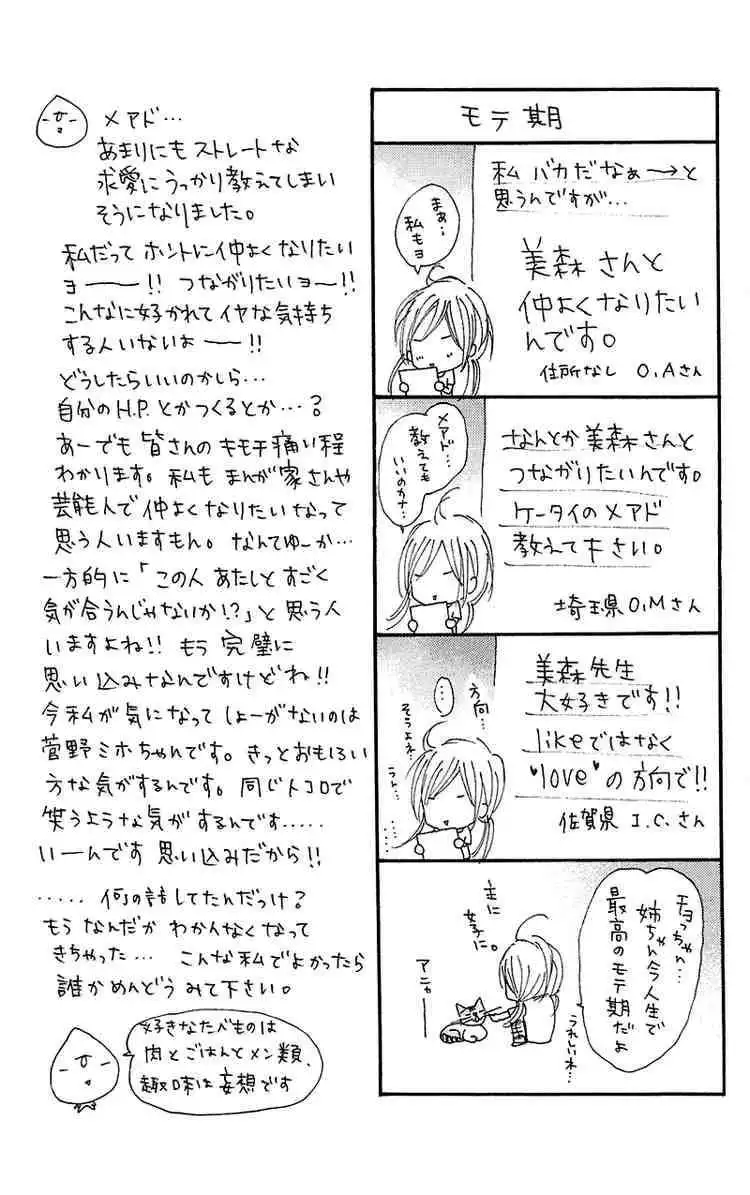 モテ期
私 バカだなぁ──→と
思うんですが…
美森さんと
仲よくなりたい
んです。
住所なし O,Aさん
まぁ…
私もヨ
なんとか美森さんと
つながりたいんです。
ケータイのメアド
教えて下さい。
埼玉県O,Mさん
メアド…
教えても
いいのカナ…
美森先生
大好きです!!
likeではなく
"love"の方向で!!
佐賀県 I.C.さん
方向…
…
そうよね…
うん…
チョっちゃん…
姉ちゃん今人生で
最高のモテ期だよ
うれしいネ…
主に
女子に。
アニャ──
メアド…
あまりにもストレートな
求愛にうっかり教えてしまい
そうになりました。
私だって ホントに仲よくなりたい
ヨ──!! つながりたいヨ─!!
こんなに好かれてイヤな気持ち
する人いないよ──!!
どうしたらいいのかしら…
自分のH.P.とかつくるとか…?
あーでも皆さんのキモチ痛い程
わかります。私も まんが家さんや
芸能人で仲よくなりたいなって
思う人いますもん。なんてゆーか…
一方的に「この人あたしとすごく
気が合うんじゃないか!?」と思う人
いますよね!! もう 完璧に
思い込みなんですけどね!!
今私が気になってしょーがないのは
菅野ミホちゃんです。きっとおもしろい
方な気がするんです。同じトコロで
笑うような気がするんです.....
いーんです 思い込みだから!!
..... 何の話してたんだっけ?
もう なんだか わかんなくなって
きちゃった… こんな私でよかったら
誰かめんどうみて下さい。
好きなたべものは
肉とごはんとメン類、
趣味は妄想です